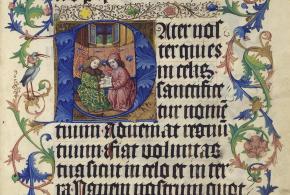 Pater nos
ter qui es
in celis
sanctifice
tur nomē
tuum adueniat regnū
tuum fiat voluntas
tua sicut in celo et in ter
ra Panem nostrum quot